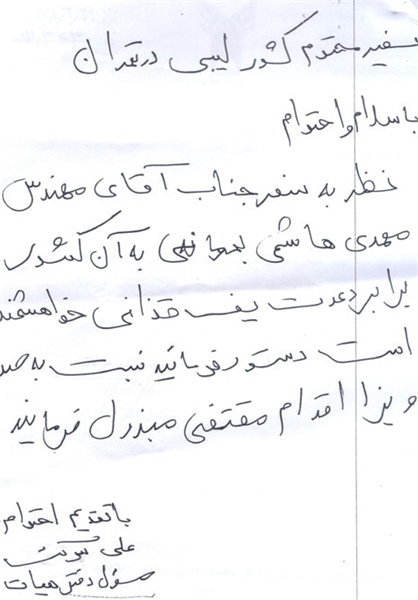 سفیر محترم کشور لیبی در تهران
با سلام و احترام
نظر به سفر جناب آقای مهندس
مهدی هاشمی بهرمانی به آن کشور
برابر دعوت سیف قذافی خواهشمند
است دستور فرمائید نسبت به صدور
ویزا اقدام مقتضی مبذول فرمایند
با تقدیم احترام
علی
مسئول دفتر هیات